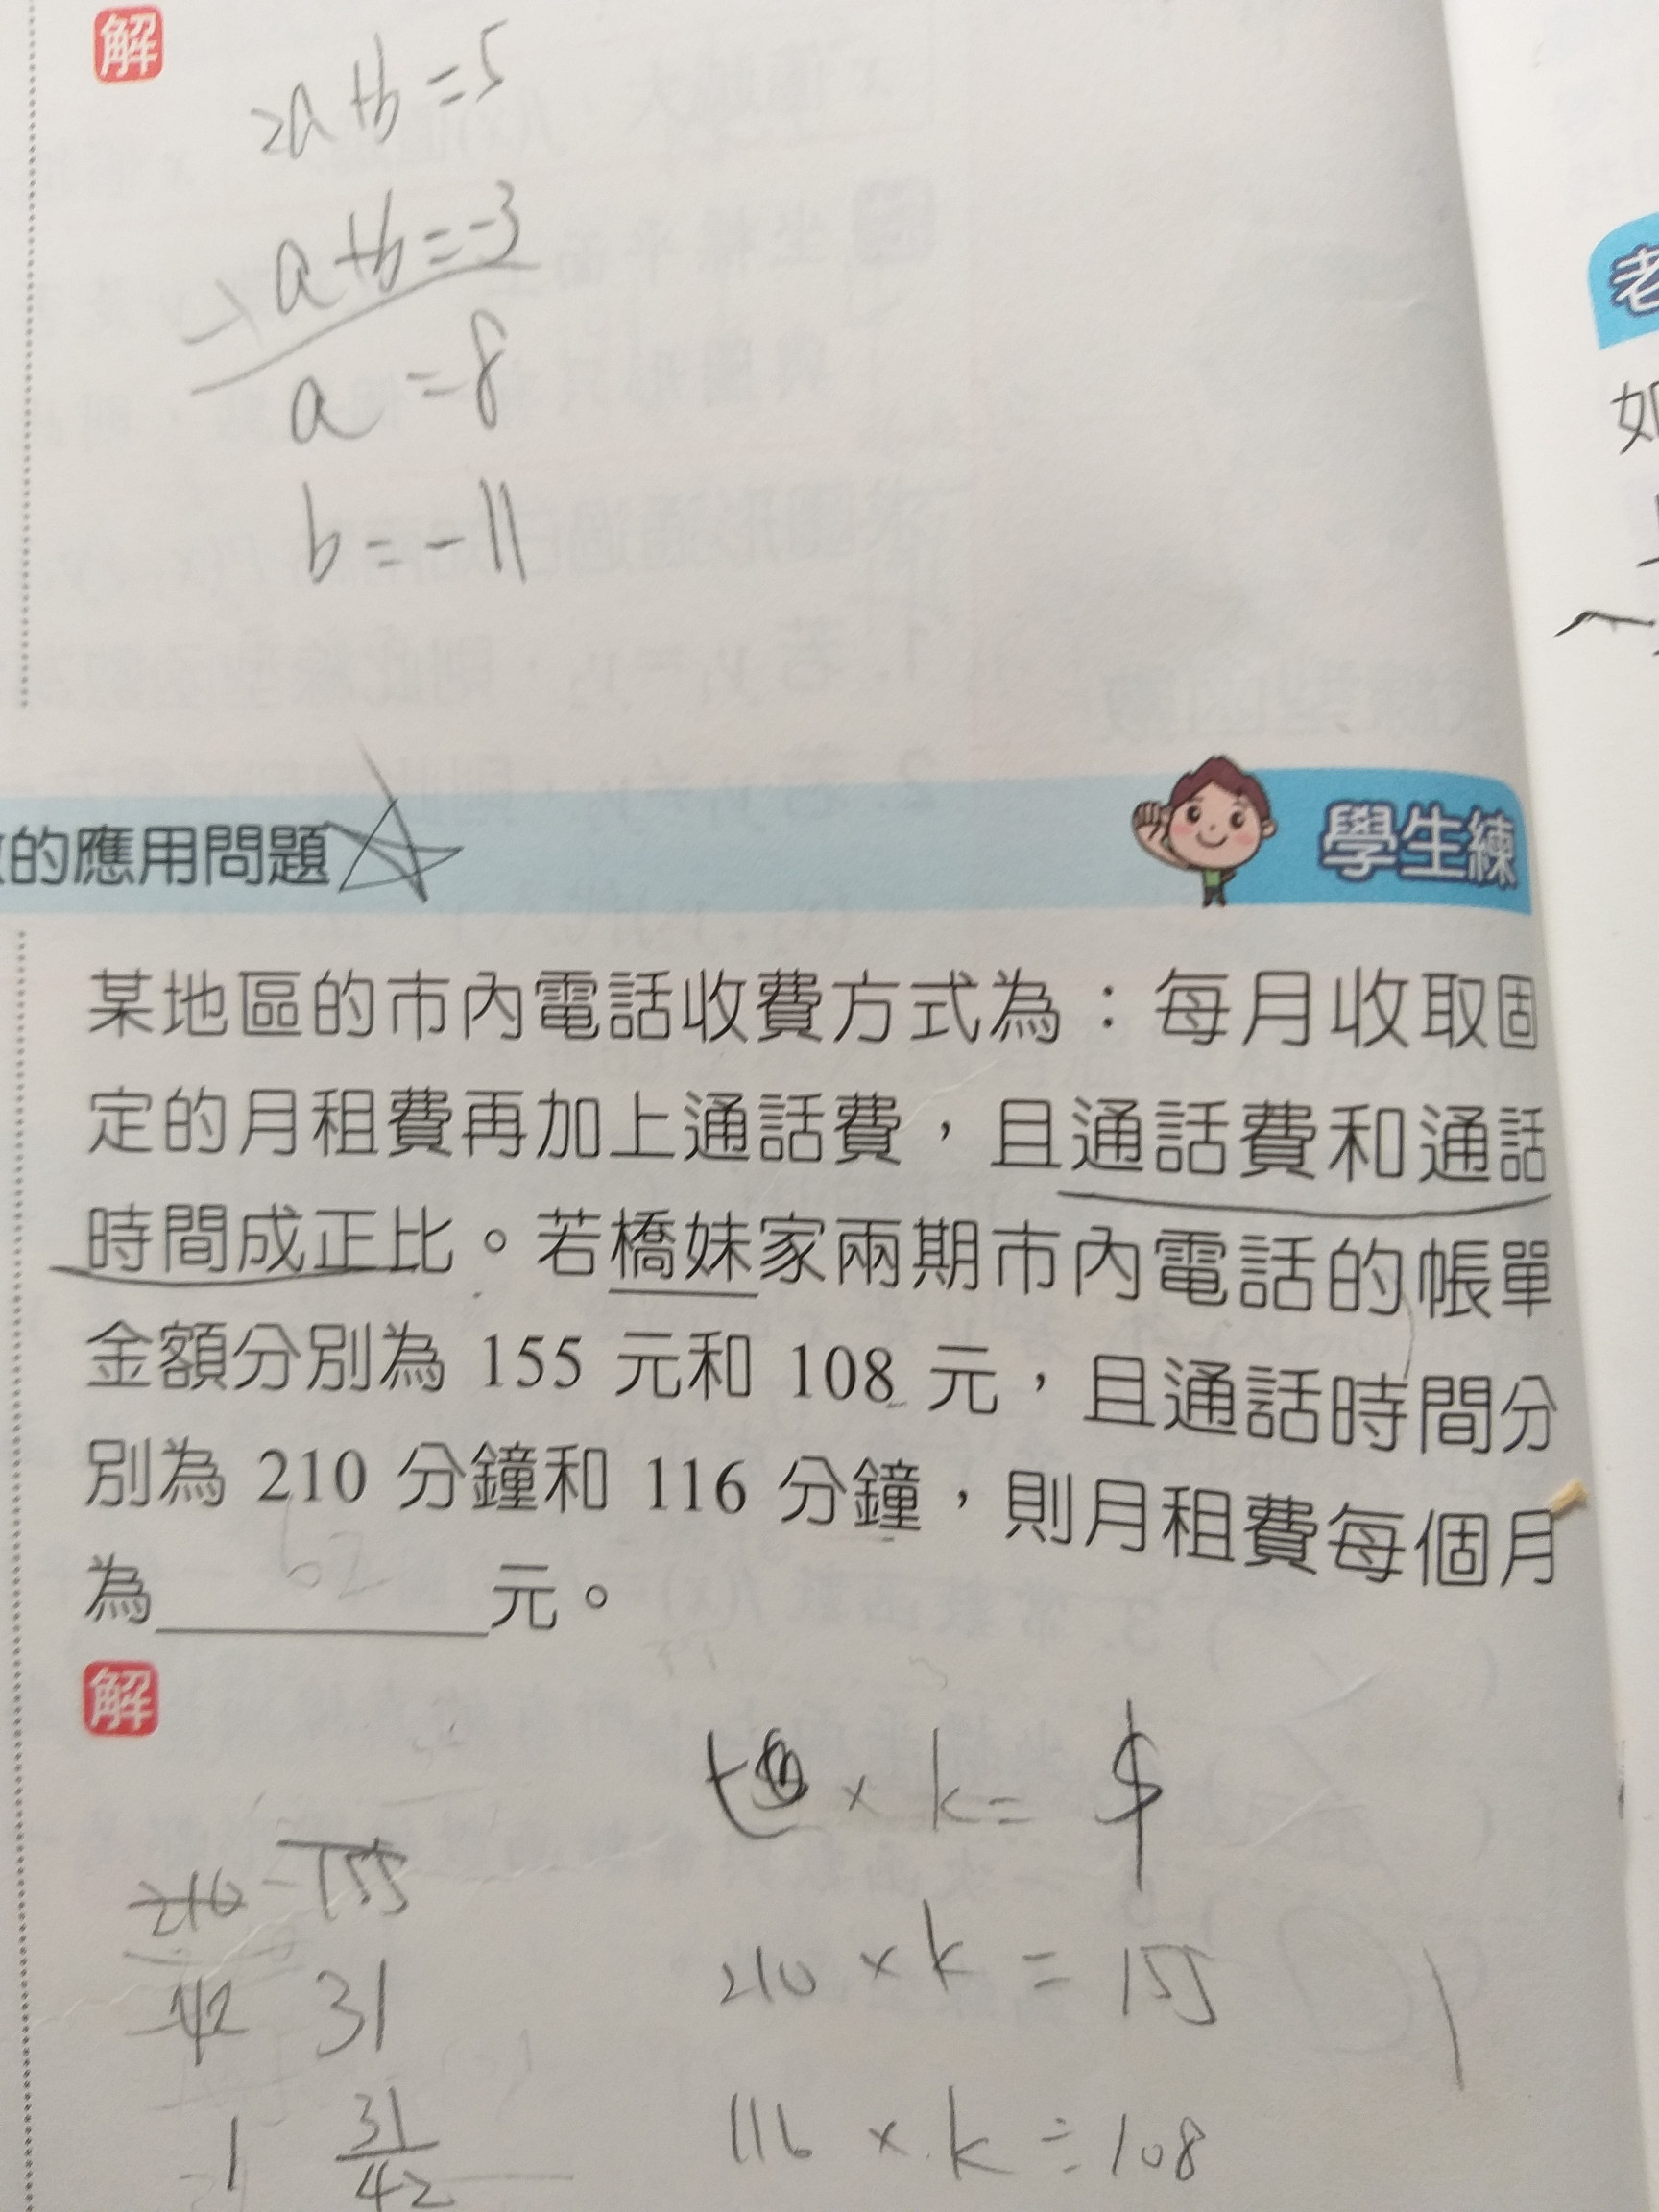 解
2a+b=5
-) a+b=-3
a=8
b=-11
的應用問題
學生練
某地區的市內電話收費方式為：每月收取固
定的月租費再加上通話費，且通話費和通話
時間成正比。若橋妹家兩期市內電話的帳單
金額分別為 155 元和 108 元，且通話時間分
別為 210 分鐘和 116 分鐘，則月租費每個月
為 62 元。
解
× k = $
210 155
210 × k = 155
42 31
116 × k = 108
1 31/42
老
如